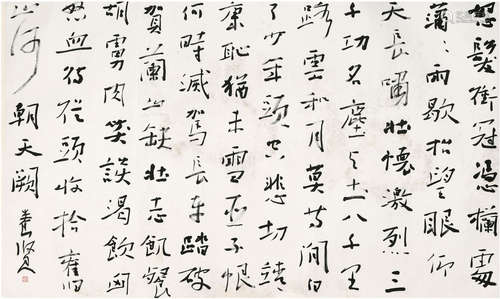 怒髮衝冠憑欄處
瀟瀟雨歇抬望眼仰
天長嘯壯懷激烈三
十功名塵与土八千里
路雲和月莫等閒白
了少年頭空悲切靖
康恥猶未雪臣子恨
何時滅駕長車踏破
賀蘭山缺壯志飢餐
胡虜肉笑談渴飲匈
奴血待從頭收拾舊
山河
朝天闕